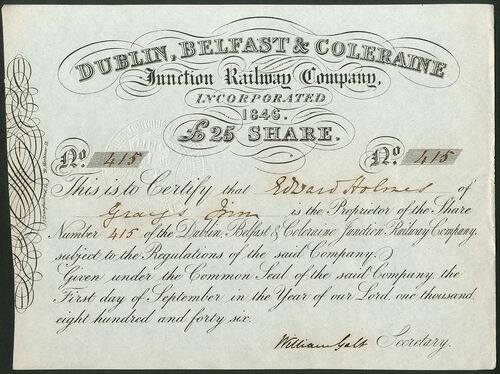 DUBLIN, BELFAST & COLERAINE
Junction Railway Company,
INCORPORATED
1846.
£25 SHARE.
No. 415 No. 415
This is to Certify that Edward Holmes of
Grays Inn is the Proprietor of the Share
Number 415 of the Dublin, Belfast & Coleraine Junction Railway Company,
subject to the Regulations of the said Company.
Given under the Common Seal of the said Company the
First day of September in the Year of our Lord, one thousand
eight hundred and forty six.
William Galt Secretary.